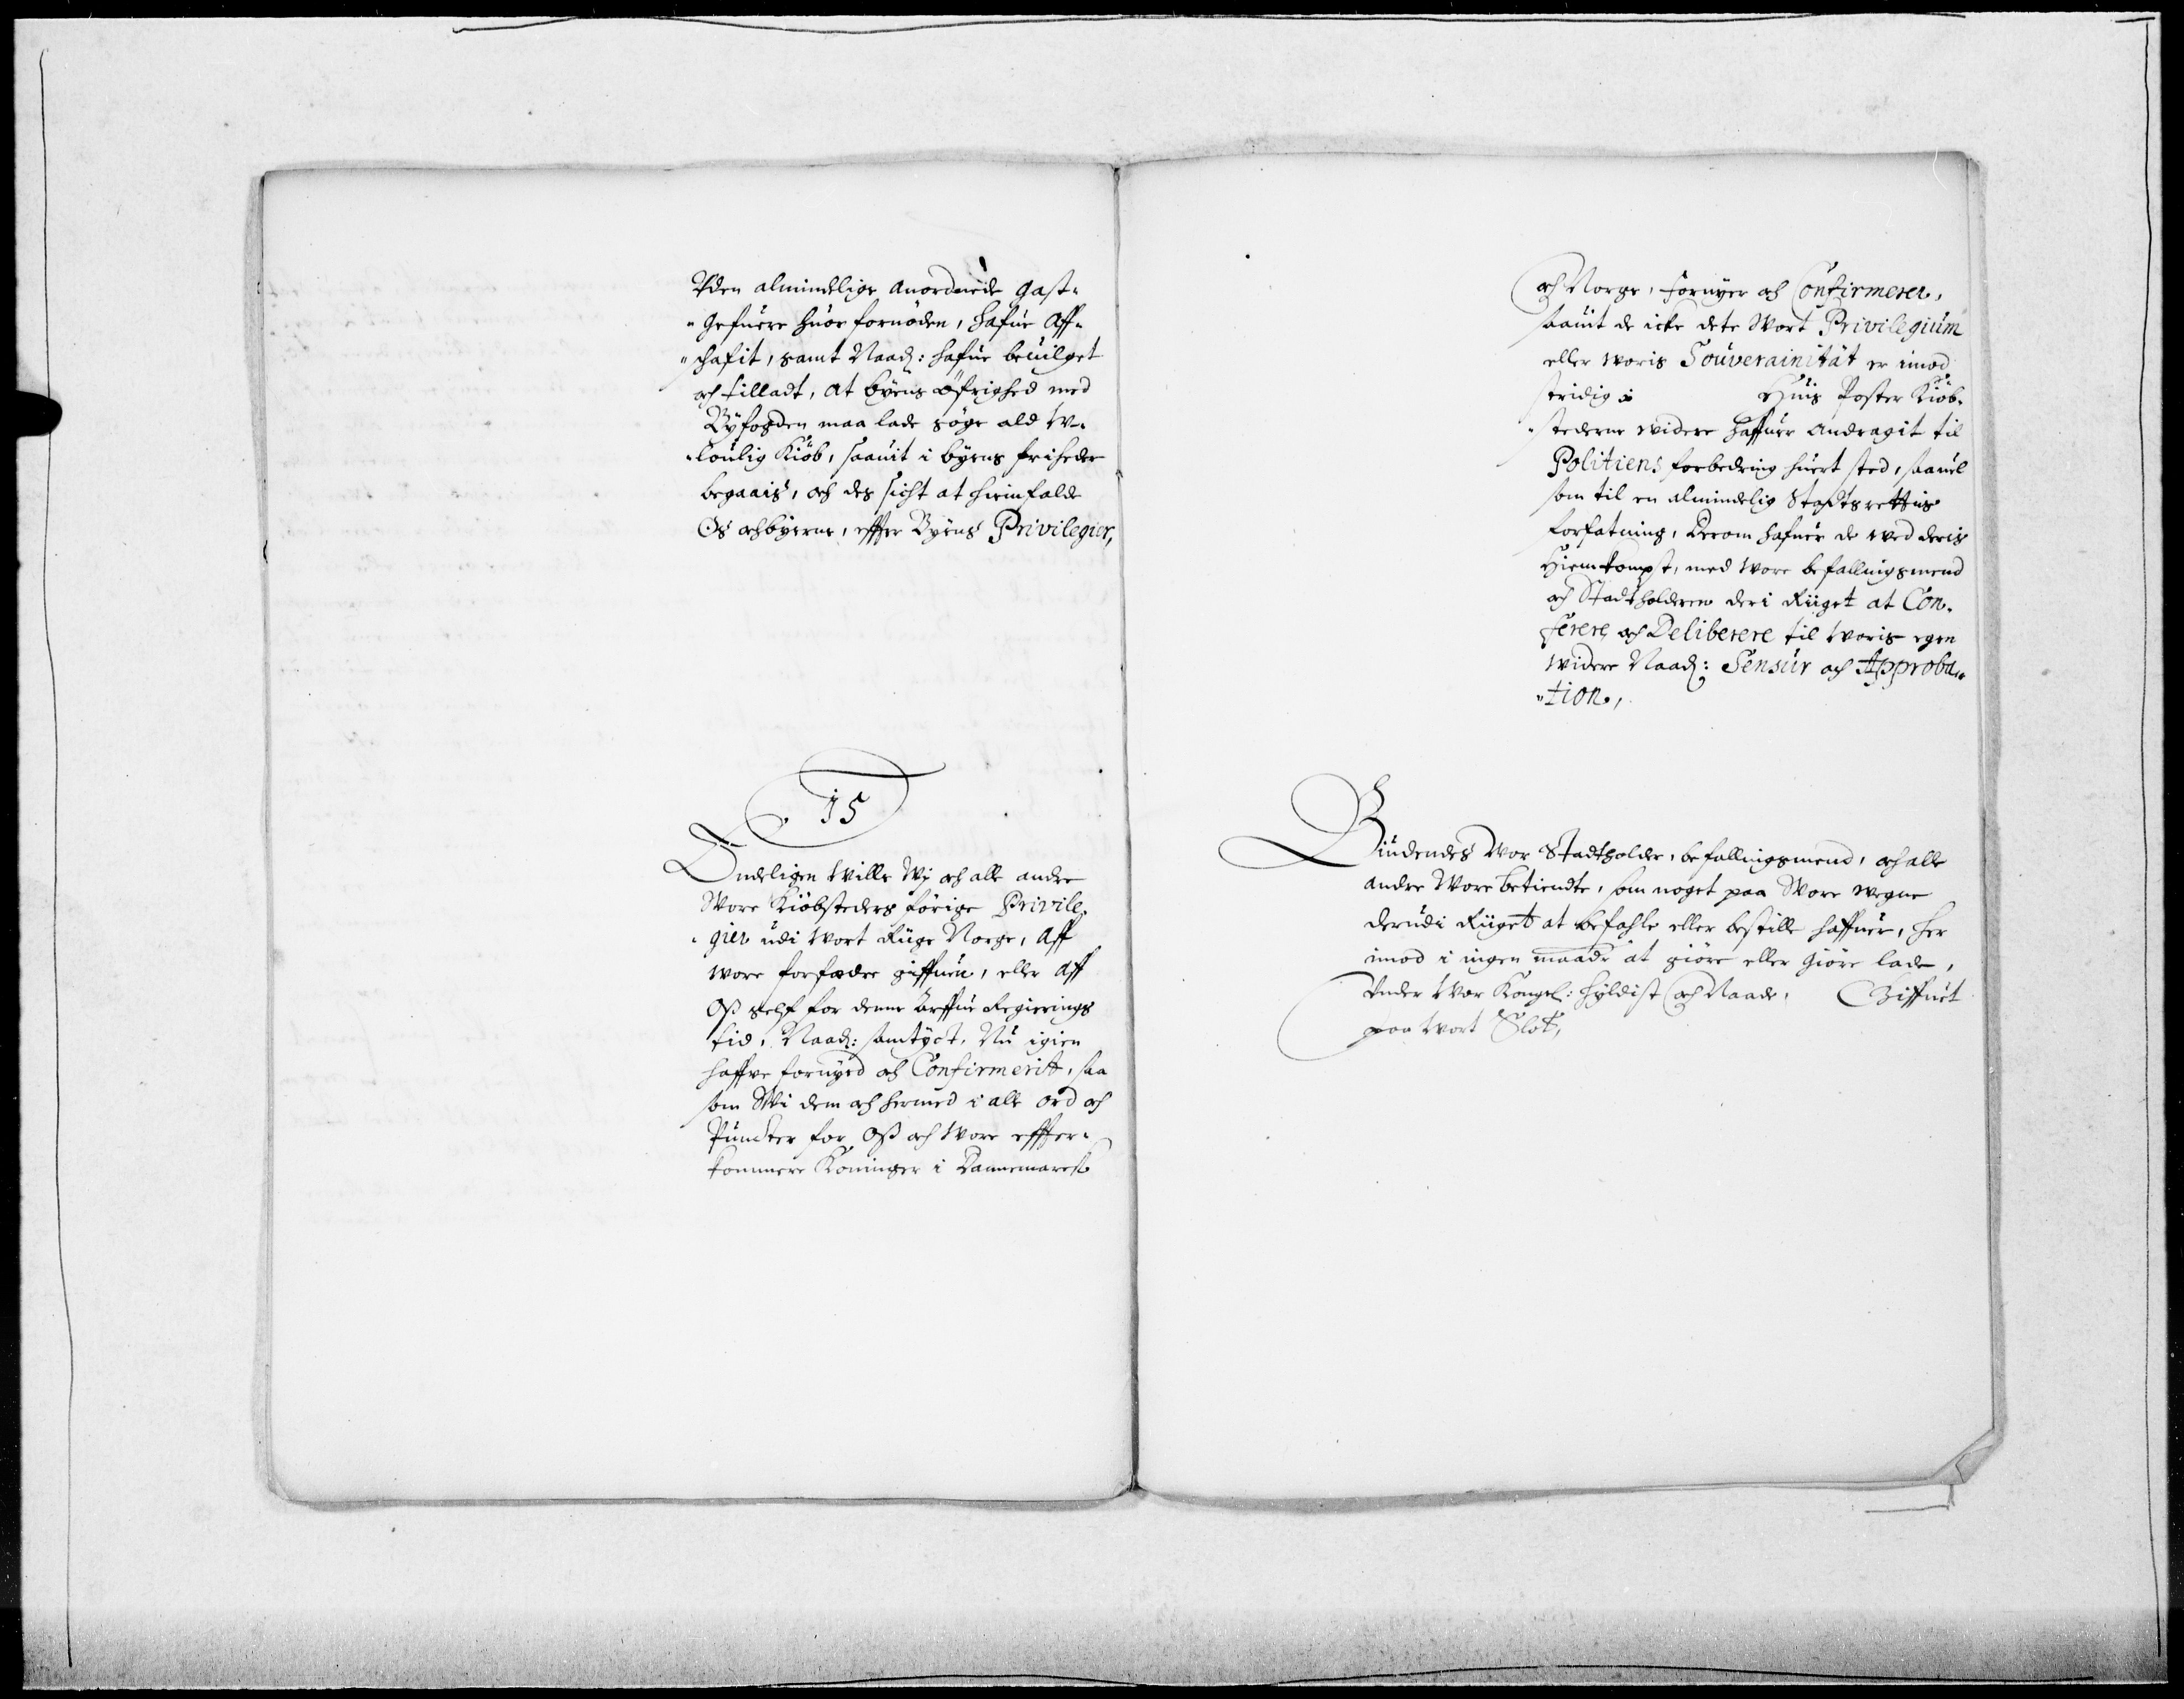 Uden almindelige anordnede gast¬
"gefuere huor fornöden, hafue aff¬
"schafit, samt Naad: hafue beuilget
och tilladt, at byens öfrighed med
Byfogden maa lade söge ald W¬
"loulig Kiöb, saauit i byens friheder
begaais, och des sicht at hiemfalde
Os och byerne, effter Byens Privilegier,
15
Endeligen Wille Wi och alle andre
Wore Kiöbsteders förige Privile¬
"gier udi Wort Riige Norge, Aff
wore forfædre giffuen, eller Aff
Oß self for denne Arffue Regierings
tid, Naad: samtyct, Nu igien
haffve fornyed och Confirmerit, saa
som Wi dem och hermed i alle ord och
Puncter for Oß och Wore effter¬
kommere Koninger i Dannemarck
och Norge, fornyer och Confirmerer,
saauit de icke dete Wort Privilegium
eller woris Souverainität er imod
stridig Huis Poster Kiöb¬
"stederne widere haffuer andragit til
Politiens forbedring huert sted, saauel
som til en almindelig Stadtsrettis
forfatning, Derom hafuer de wed deris
Hiemkompst, med wore befallingsmend
och Stadtholderen der i Riiget at Con¬
ferere och Deliberere til woris egen
widere Naad: Censur och Approba¬
"tion,
Biudendes Wor Stadtholder, befallingsmend, och alle
andre Wore betiendte, som noget paa Wore wegne
derudi Riiget at befahle eller bestille haffuer, her
imod i ingen maade at giöre eller giöre lade,
Under Wor Kongel: hyldist och Naade, Giffuet
paa Wort Slot,